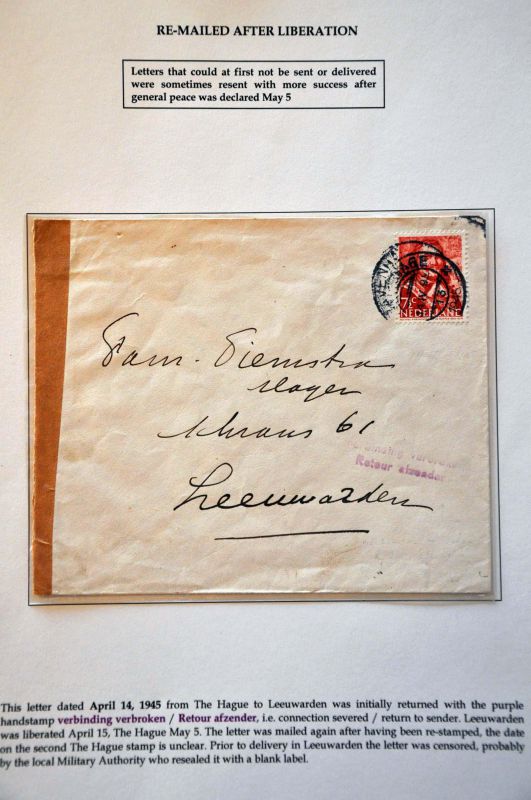 RE-MAILED AFTER LIBERATION
Letters that could at first not be sent or delivered
were sometimes resent with more success after
general peace was declared May 5
7½ c
NEDERLAND
Fam. Diemstra
61
Retour afzender
Leeuwarden
This letter dated April 14, 1945 from The Hague to Leeuwarden was initially returned with the purple
handstamp verbinding verbroken / Retour afzender, i.e. connection severed / return to sender. Leeuwarden
was liberated April 15, The Hague May 5. The letter was mailed again after having been re-stamped, the date
on the second The Hague stamp is unclear. Prior to delivery in Leeuwarden the letter was censored, probably
by the local Military Authority who resealed it with a blank label.